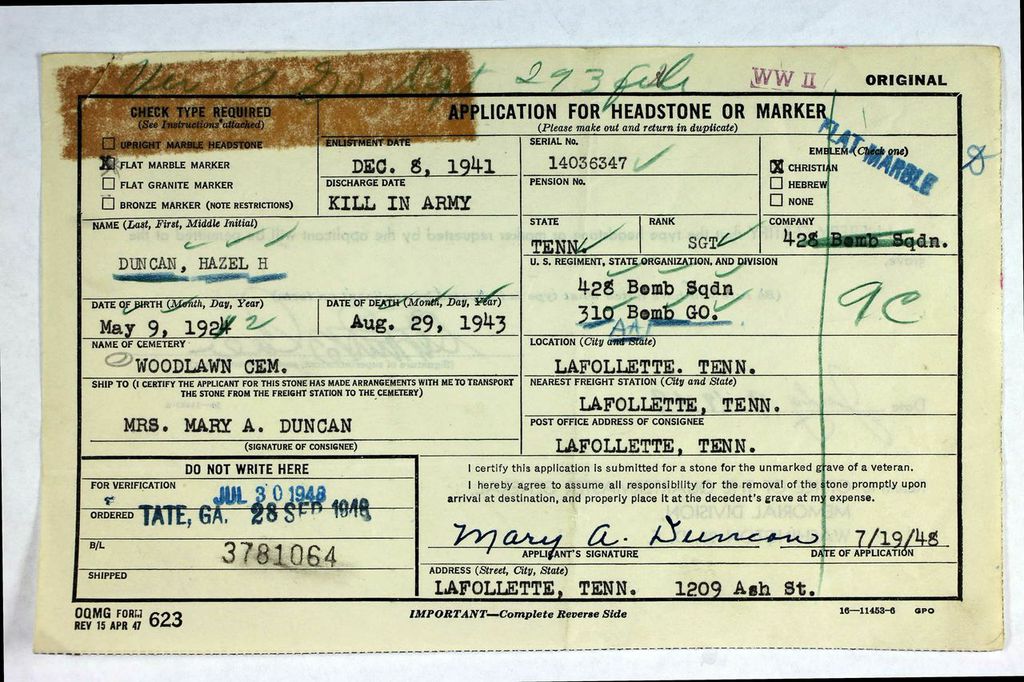 293
WW II
ORIGINAL
CHECK TYPE REQUIRED
(See Instructions attached)
UPRIGHT MARBLE HEADSTONE
X FLAT MARBLE MARKER
FLAT GRANITE MARKER
BRONZE MARKER (NOTE RESTRICTIONS)
APPLICATION FOR HEADSTONE OR MARKER
(Please make out and return in duplicate)
ENLISTMENT DATE
DEC. 8, 1941
DISCHARGE DATE
KILL IN ARMY
SERIAL No.
14036347
PENSION No.
EMBLEM (Check one)
X CHRISTIAN
HEBREW
NONE
FLAT MARBLE
NAME (Last, First, Middle Initial)
DUNCAN, HAZEL H
STATE
TENN.
RANK
SGT
COMPANY
428 Bomb Sqdn.
U. S. REGIMENT, STATE ORGANIZATION, AND DIVISION
428 Bomb Sqdn
310 Bomb GO.
AAF
9C
DATE OF BIRTH (Month, Day, Year)
May 9, 1924 2
DATE OF DEATH (Month, Day, Year)
Aug. 29, 1943
NAME OF CEMETERY
WOODLAWN CEM.
LOCATION (City and State)
LAFOLLETTE. TENN.
SHIP TO (I CERTIFY THE APPLICANT FOR THIS STONE HAS MADE ARRANGEMENTS WITH ME TO TRANSPORT
THE STONE FROM THE FREIGHT STATION TO THE CEMETERY)
MRS. MARY A. DUNCAN
(SIGNATURE OF CONSIGNEE)
NEAREST FREIGHT STATION (City and State)
LAFOLLETTE, TENN.
POST OFFICE ADDRESS OF CONSIGNEE
LAFOLLETTE, TENN.
DO NOT WRITE HERE
FOR VERIFICATION
JUL 30 1948
ORDERED
TATE, GA. 28 SEP 1948
B/L
3781064
SHIPPED
I certify this application is submitted for a stone for the unmarked grave of a veteran.
I hereby agree to assume all responsibility for the removal of the stone promptly upon
arrival at destination, and properly place it at the decedent's grave at my expense.
Mary A. Duncan 7/19/48
APPLICANT'S SIGNATURE DATE OF APPLICATION
ADDRESS (Street, City, State)
LAFOLLETTE, TENN. 1209 Ash St.
OQMG FORM
REV 15 APR 47 623
IMPORTANT—Complete Reverse Side
16—11453-6 GPO